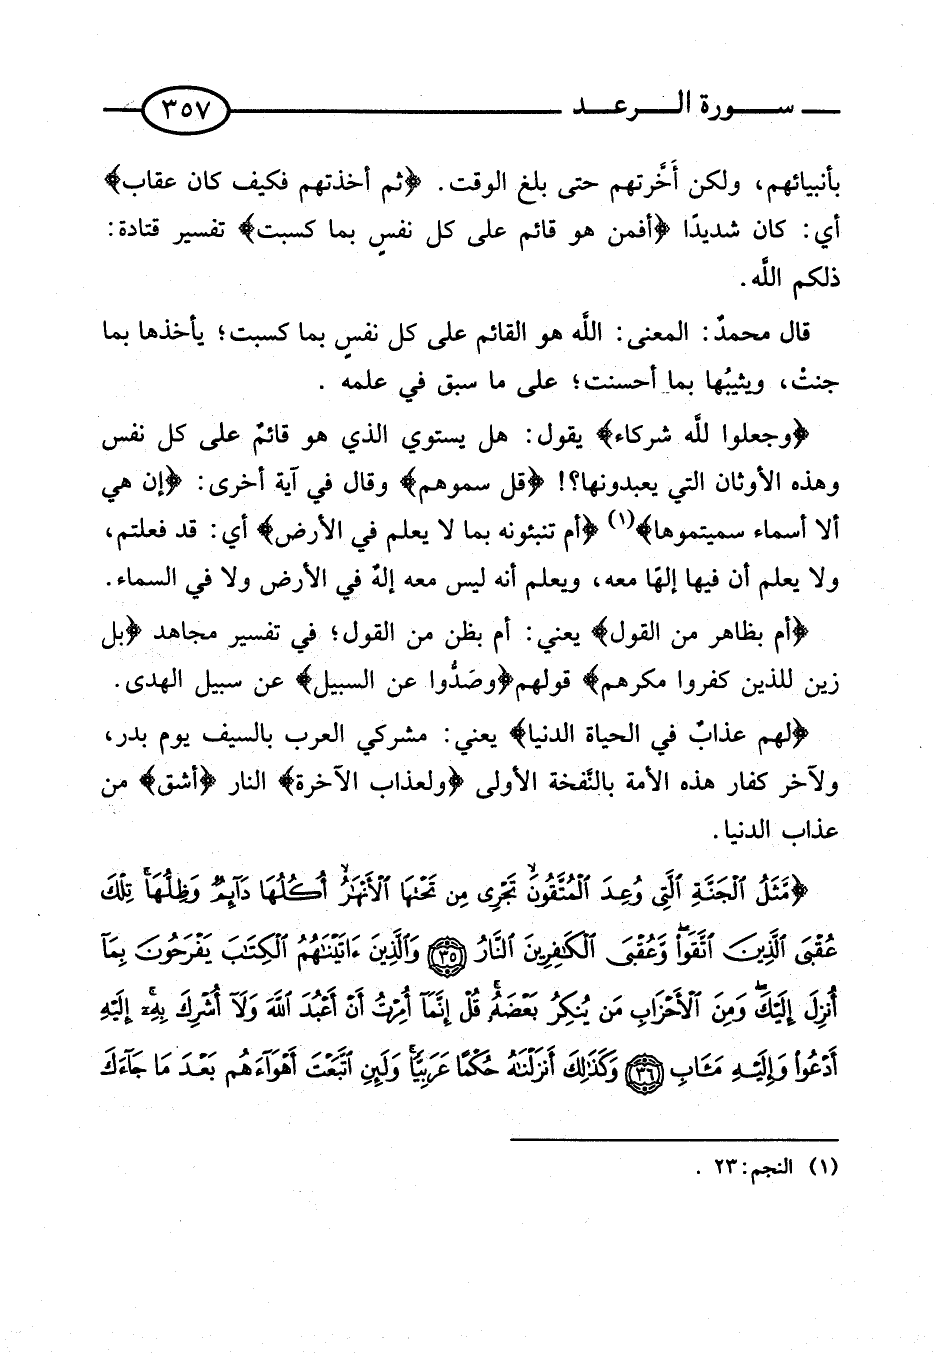 سورة الرعد ٣٥٧
بأنبيائهم، ولكن أَخَّرتهم حتى بلغ الوقت. ﴿ثم أخذتهم فكيف كان عقاب﴾
أي: كان شديدًا ﴿أفمن هو قائم على كل نفسٍ بما كسبت﴾ تفسير قتادة:
ذلكم اللَّه.
قال محمدٌ: المعنى: اللَّه هو القائم على كل نفسٍ بما كسبت؛ يأخذها بما
جنتْ، ويثيبُها بما أحسنت؛ على ما سبق في علمه .
﴿وجعلوا للَّه شركاء﴾ يقول: هل يستوي الذي هو قائمٌ على كل نفس
وهذه الأوثان التي يعبدونها؟! ﴿قل سموهم﴾ وقال في آية أخرى: ﴿إن هي
ألا أسماء سميتموها﴾(١) ﴿أم تنبئونه بما لا يعلم في الأرض﴾ أي: قد فعلتم،
ولا يعلم أن فيها إلهًا معه، ويعلم أنه ليس معه إلهٌ في الأرض ولا في السماء.
﴿أم بظاهر من القول﴾ يعني: أم بظن من القول؛ في تفسير مجاهد ﴿بل
زين للذين كفروا مكرهم﴾ قولهم ﴿وصَدُّوا عن السبيل﴾ عن سبيل الهدى.
﴿لهم عذابٌ في الحياة الدنيا﴾ يعني: مشركي العرب بالسيف يوم بدر،
ولآخر كفار هذه الأمة بالنَّفخة الأولى ﴿ولعذاب الآخرة﴾ النار ﴿أشق﴾ من
عذاب الدنيا.
﴿مَّثَلُ ٱلْجَنَّةِ ٱلَّتِي وُعِدَ ٱلْمُتَّقُونَۖ تَجْرِي مِن تَحْتِهَا ٱلْأَنْهَٰرُۖ أُكُلُهَا دَآئِمٌ وَظِلُّهَاۚ تِلْكَ
عُقْبَى ٱلَّذِينَ ٱتَّقَوا۟ۖ وَّعُقْبَى ٱلْكَٰفِرِينَ ٱلنَّارُ ٣٥ وَٱلَّذِينَ ءَاتَيْنَٰهُمُ ٱلْكِتَٰبَ يَفْرَحُونَ بِمَآ
أُنزِلَ إِلَيْكَۖ وَمِنَ ٱلْأَحْزَابِ مَن يُنكِرُ بَعْضَهُۥۚ قُلْ إِنَّمَآ أُمِرْتُ أَنْ أَعْبُدَ ٱللَّهَ وَلَآ أُشْرِكَ بِهِۦٓۚ إِلَيْهِ
أَدْعُوا۟ وَإِلَيْهِ مَـَٔابِ ٣٦ وَكَذَٰلِكَ أَنزَلْنَٰهُ حُكْمًا عَرَبِيًّاۚ وَلَئِنِ ٱتَّبَعْتَ أَهْوَآءَهُم بَعْدَ مَا جَآءَكَ
(١) النجم: ٢٣ .